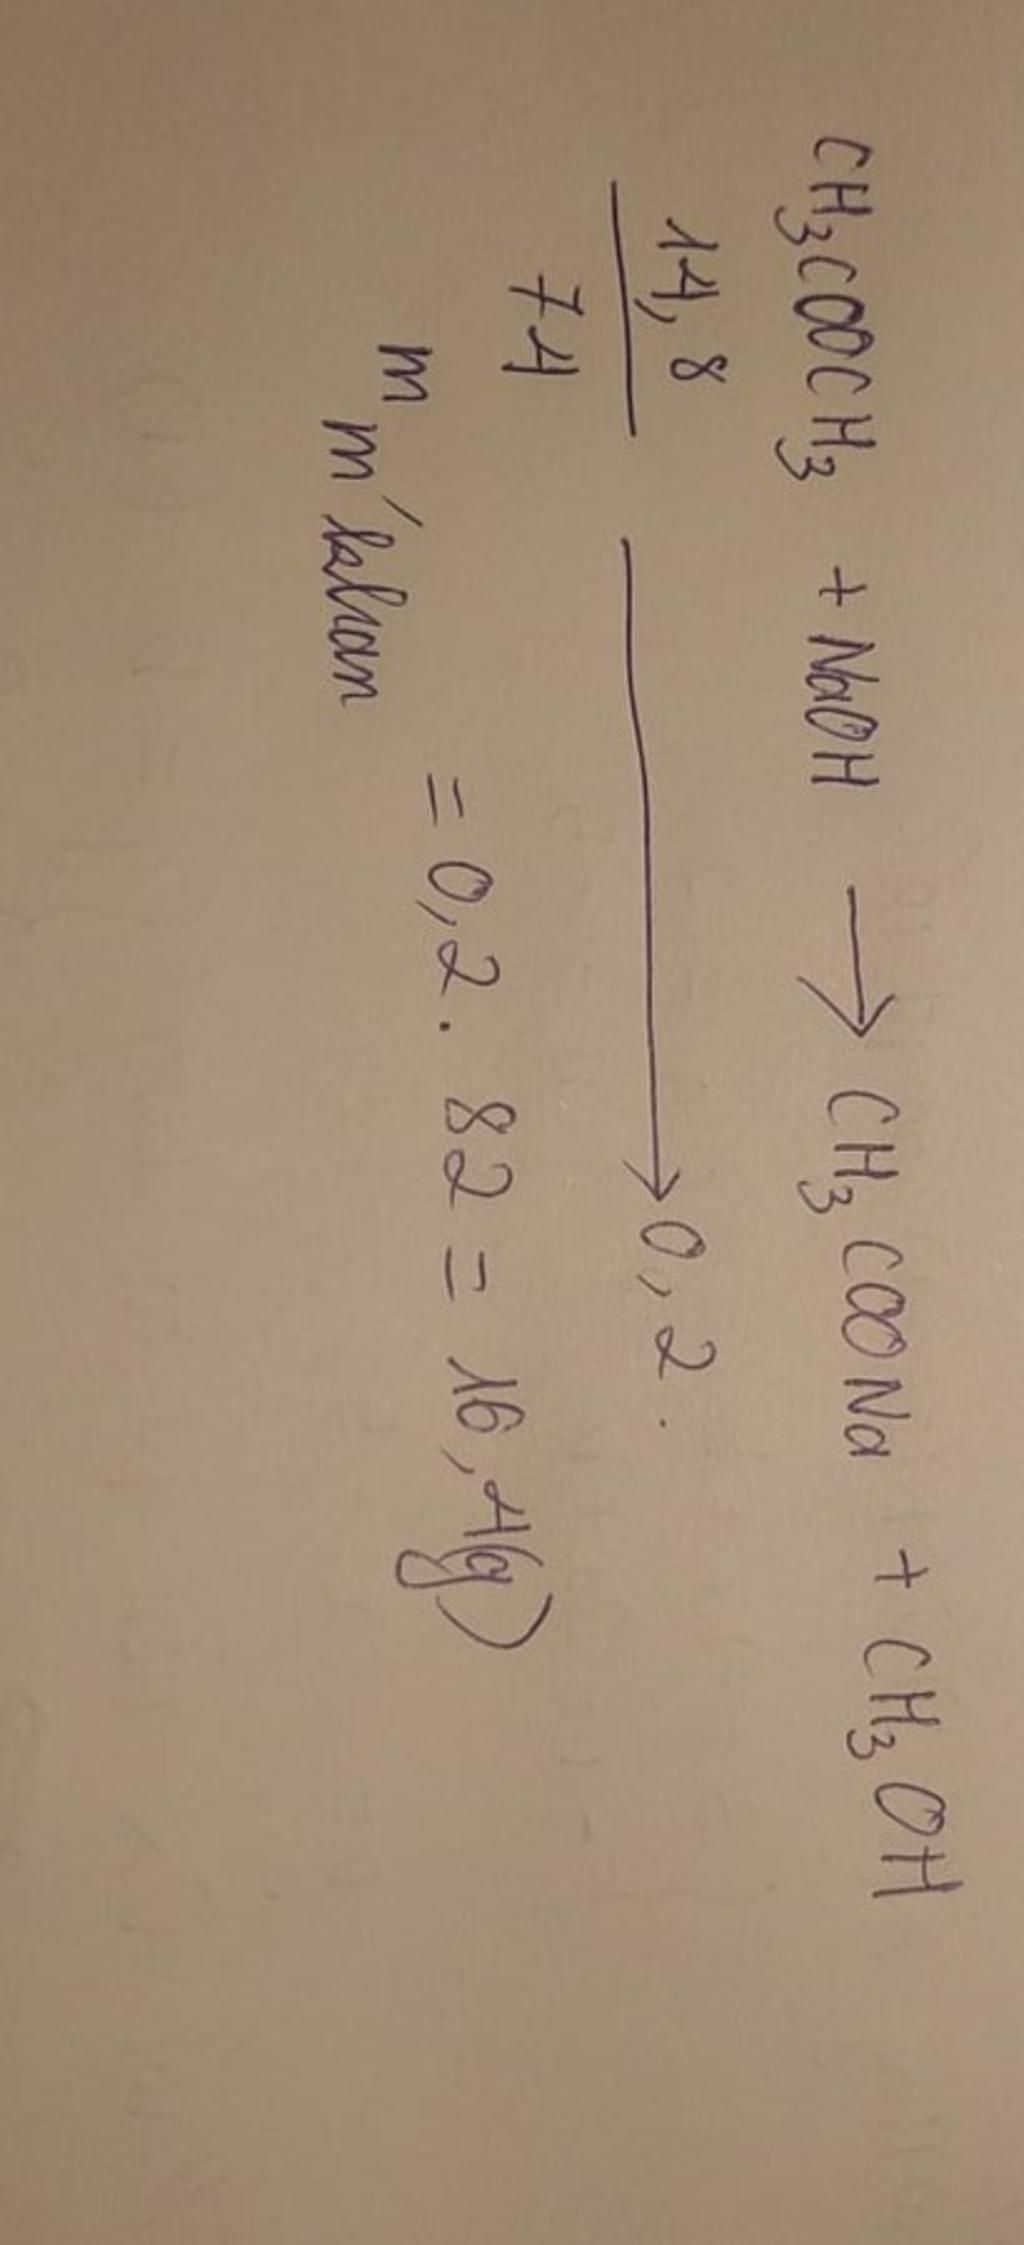 CH3COOCH3 + NaOH → CH3COONa + CH3OH
14,8
74 → 0,2.
m = 0,2. 82 = 16,4(g)